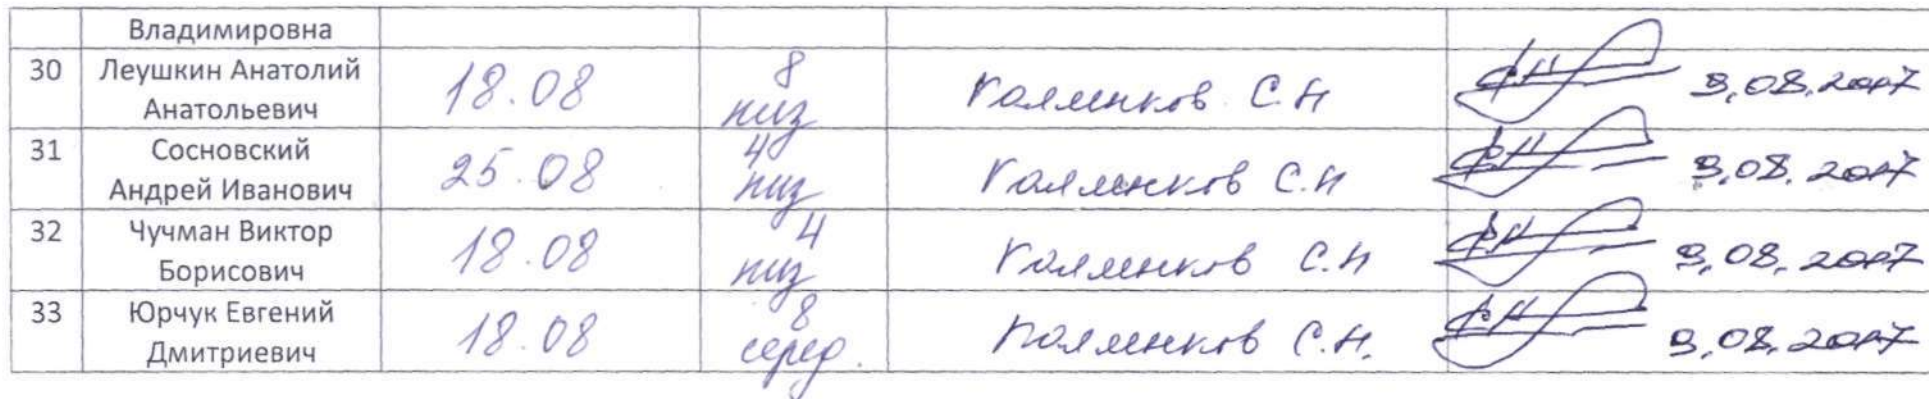 Владимировна
30 Леушкин Анатолий Анатольевич 18.08 8 низ С.Н 9.08.2017
31 Сосновский Андрей Иванович 25.08 4 низ С.Н 9.08.2017
32 Чучман Виктор Борисович 18.08 4 низ С.Н 9.08.2017
33 Юрчук Евгений Дмитриевич 18.08 8 серед. С.Н. 9.08.2017